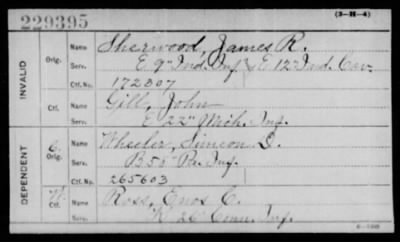 229395
(3-H-4)
INVALID
Orig.
Name Sherwood, James R.
Serv. E 9" Ind. Inf. & E 12" Ind. Cav.
Ctf. No. 172307
Ctf.
Name Gill, John
Serv. E 22" Mich. Inf.
DEPENDENT
C. Orig.
Name Wheeler, Simeon D.
Serv. B 56" Pa. Inf.
Ctf. No. 265603
W. Ctf.
Name Ross, Enos C.
Serv. K 26" Conn. Inf.